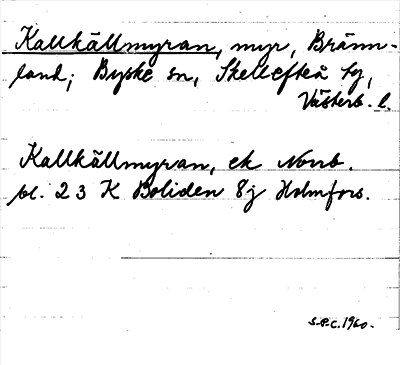 Kallkällmyran, myr, Bränn-
land; Byske sn, Skellefteå tg,
Västerb. l.
Kallkällmyran, ek Norrb.
bl. 23 K Boliden 8j Holmfors.
S.P.C. 1960.